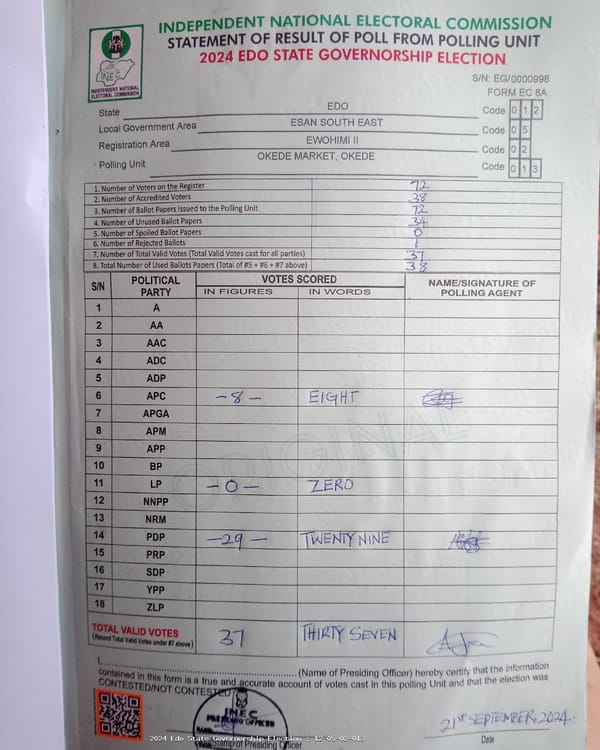 INDEPENDENT NATIONAL ELECTORAL COMMISSION
STATEMENT OF RESULT OF POLL FROM POLLING UNIT
2024 EDO STATE GOVERNORSHIP ELECTION
INEC
INDEPENDENT NATIONAL ELECTORAL COMMISSION
S/N: EG/0000998
FORM EC 8A
State EDO Code 0 1 2
Local Government Area ESAN SOUTH EAST Code 0 5
Registration Area EWOHIMI II Code 0 2
Polling Unit OKEDE MARKET, OKEDE Code 0 1 3
1. Number of Voters on the Register 72
2. Number of Accredited Voters 38
3. Number of Ballot Papers Issued to the Polling Unit 72
4. Number of Unused Ballot Papers 34
5. Number of Spoiled Ballot Papers 0
6. Number of Rejected Ballots 1
7. Number of Total Valid Votes (Total Valid Votes cast for all parties) 37
8. Total Number of Used Ballots Papers (Total of #5 + #6 + #7 above) 38
S/N POLITICAL PARTY VOTES SCORED NAME/SIGNATURE OF POLLING AGENT
IN FIGURES IN WORDS
1 A
2 AA
3 AAC
4 ADC
5 ADP
6 APC -8- EIGHT
7 APGA
8 APM
9 APP
10 BP
11 LP -0- ZERO
12 NNPP
13 NRM
14 PDP -29- TWENTY NINE
15 PRP
16 SDP
17 YPP
18 ZLP
ORIGINAL
TOTAL VALID VOTES 37 THIRTY SEVEN
(Record Total Valid Votes under #7 above)
I, (Name of Presiding Officer) hereby certify that the information
contained in this form is a true and accurate account of votes cast in this polling Unit and that the election was
CONTESTED/NOT CONTESTED
INEC
PRESIDING OFFICER
21ST SEPTEMBER, 2024
Stamp of Presiding Officer Date
2024 Edo State Governorship Election - 12-05-02-013